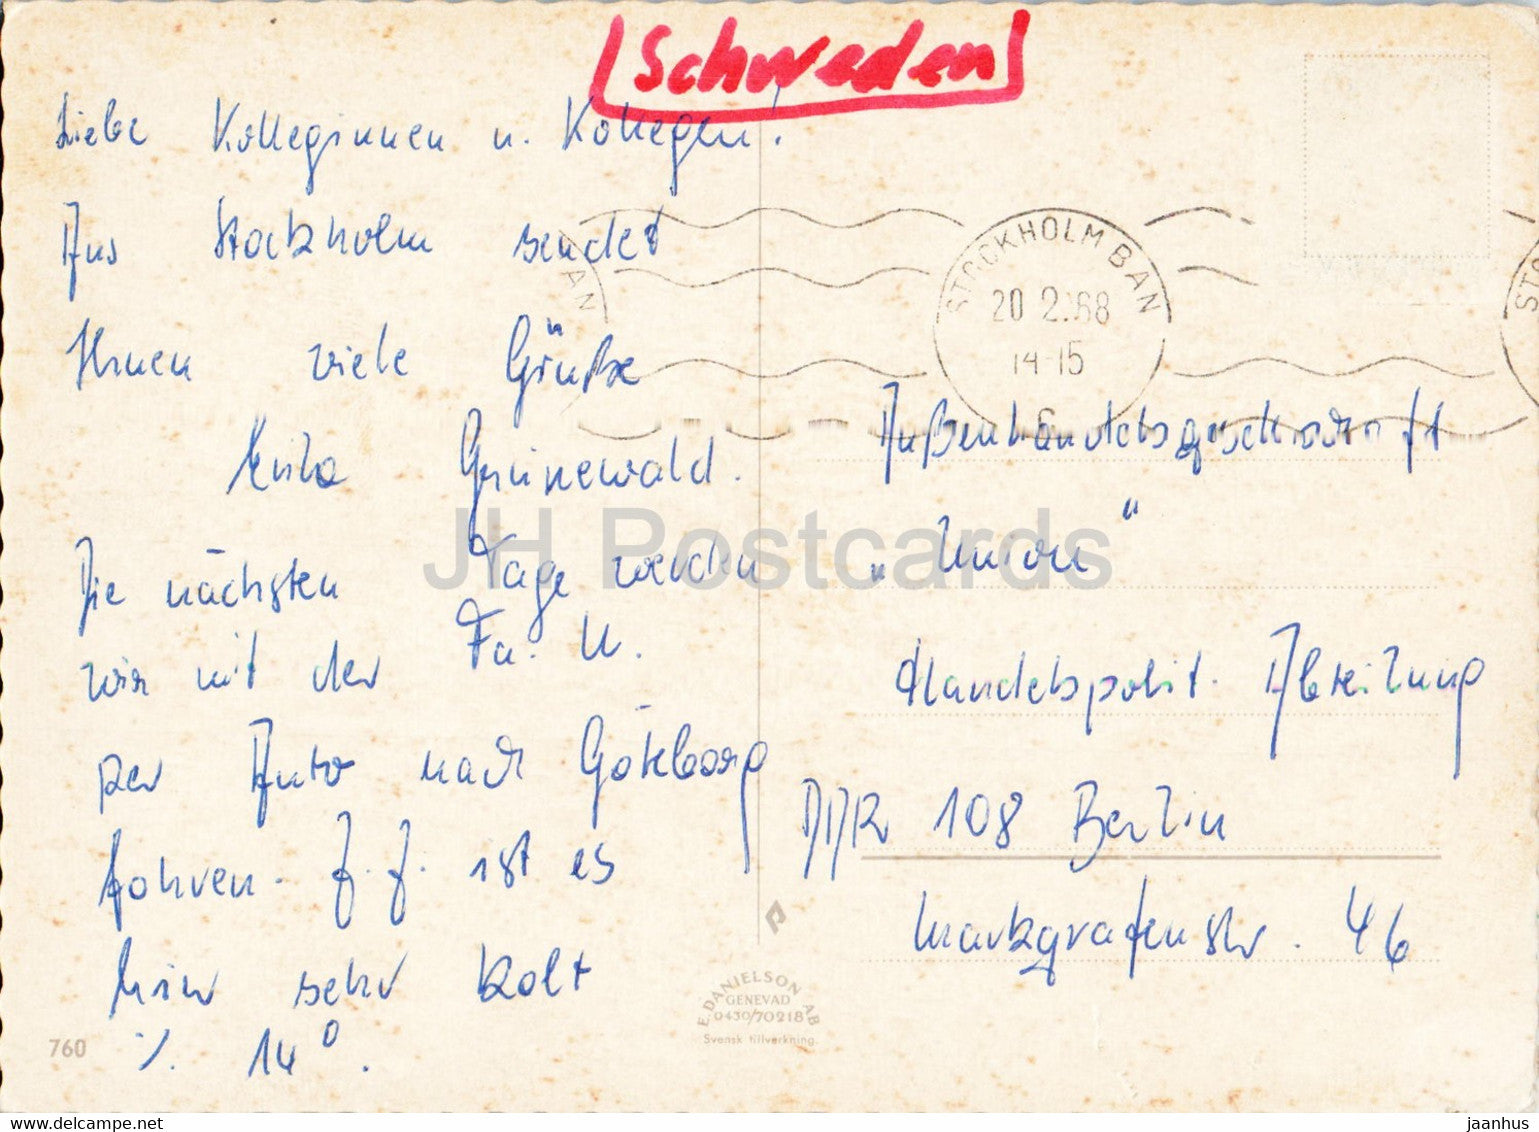 Schweden
Liebe Kolleginnen u. Kollegen!
Aus Stockholm sendet
Ihnen viele Grüße
Grünewald.
Die nächsten Tage werden
wir mit der Fa. U.
per Auto nach Göteborg
fahren. Z. Z. ist es
hier sehr kalt
./. 14°.
STOCKHOLM BAN
20 2.68
14-15
6
Außenhandelsgesellschaft
„Union“
Handelspolit. Abteilung
DDR 108 Berlin
Markgrafenstr. 46
JH Postcards
E. DANIELSON AB
GENEVAD
0430/70218
Svensk tillverkning.
760
www.delcampe.net
jaanhus